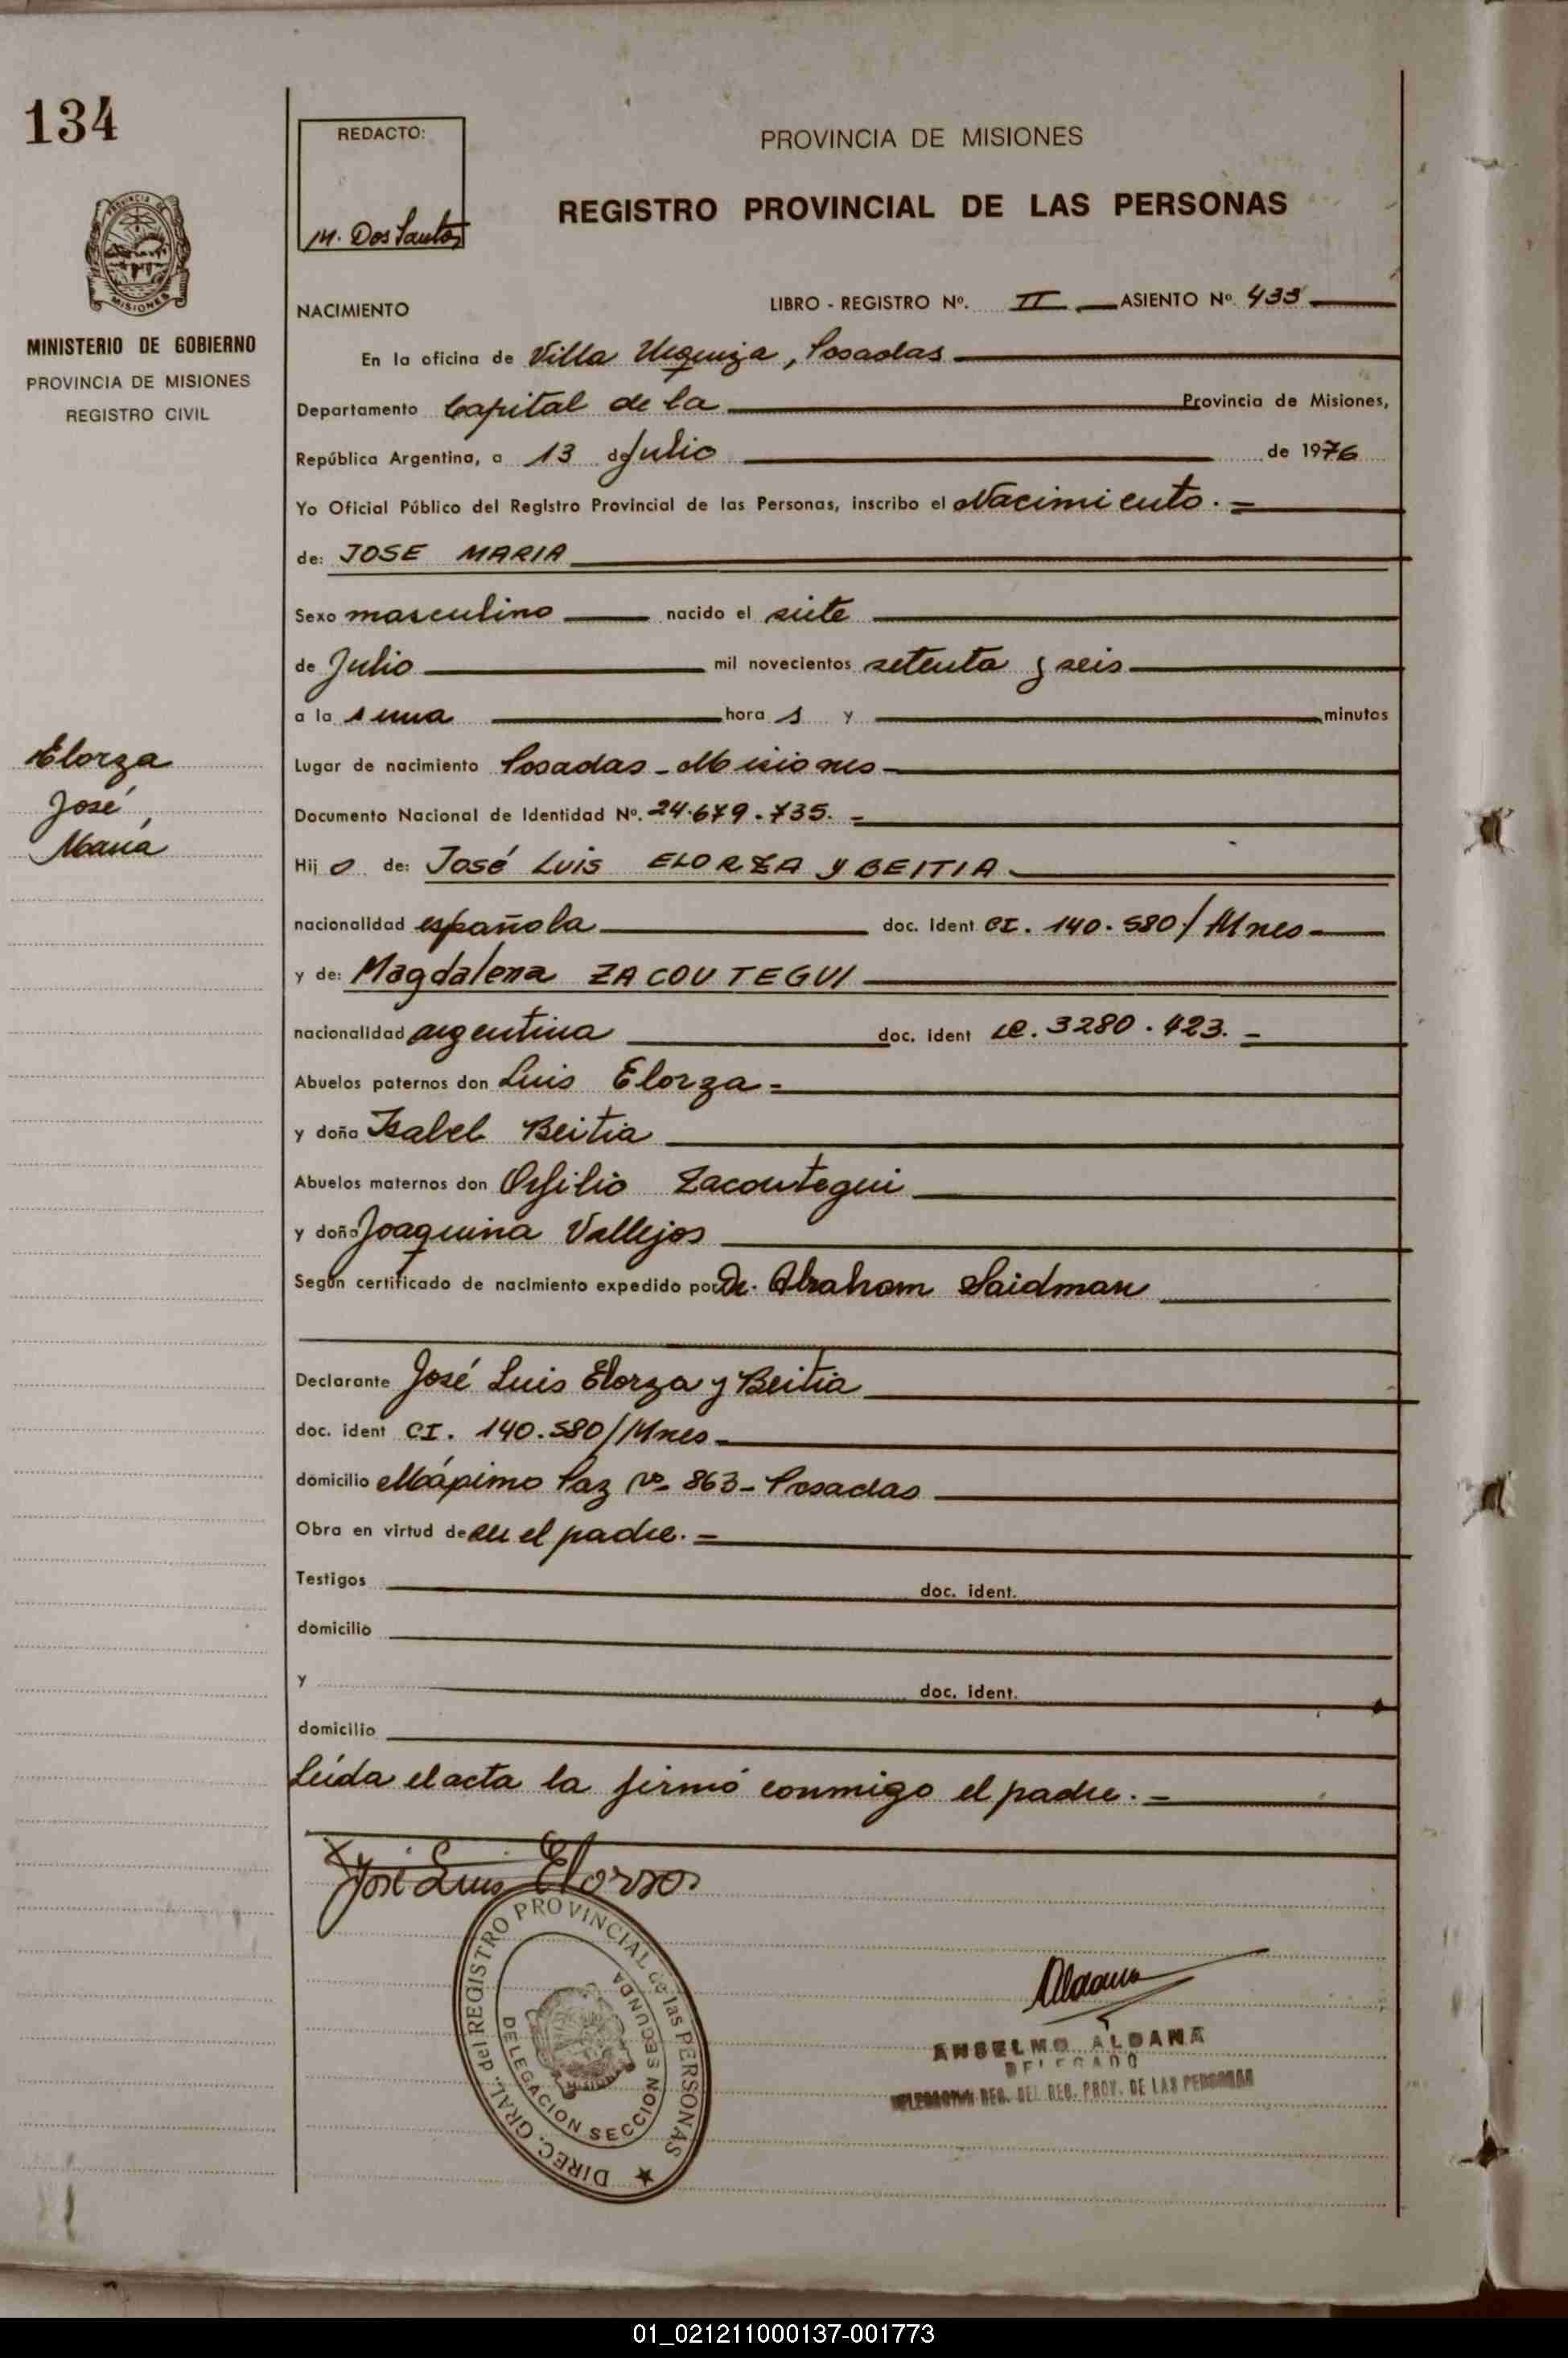 134
REDACTO:
M. Dos Santos
PROVINCIA DE MISIONES
REGISTRO PROVINCIAL DE LAS PERSONAS
PROVINCIA DE
MISIONES
MINISTERIO DE GOBIERNO
PROVINCIA DE MISIONES
REGISTRO CIVIL
NACIMIENTO LIBRO - REGISTRO Nº. II ASIENTO Nº 433
En la oficina de Villa Urquiza, Posadas
Departamento Capital de la Provincia de Misiones,
República Argentina, a 13 de Julio de 1976
Yo Oficial Público del Registro Provincial de las Personas, inscribo el Nacimiento. =
de: JOSE MARIA
Sexo masculino nacido el siete
de Julio mil novecientos setenta y seis
a la s una hora s y minutos
Lugar de nacimiento Posadas - Misiones
Documento Nacional de Identidad Nº. 24.679.735. =
Elorza
José
María
Hij o de: José Luis ELORZA y BEITIA
nacionalidad española doc. Ident CI. 140.580/Mnes
y de: Magdalena ZACOUTEGUI
nacionalidad argentina doc. ident LC. 3280.423. =
Abuelos paternos don Luis Elorza =
y doña Isabel Beitia
Abuelos maternos don Orfilio Zacoutegui
y doña Joaquina Vallejos
Según certificado de nacimiento expedido por Dr. Abraham Saidman
Declarante José Luis Elorza y Beitia
doc. ident CI. 140.580/Mnes
domicilio Máximo Paz Nº 863 - Posadas
Obra en virtud de ser el padre. =
Testigos doc. ident.
domicilio
y doc. ident.
domicilio
Leída el acta la firmó conmigo el padre. =
José Luis Elorza
DIREC. GRAL. del REGISTRO PROVINCIAL de las PERSONAS
DELEGACION SECCION SEGUNDA
Aldana
ANSELMO ALDANA
DELEGADO
DELEGACION REG. DEL REG. PROV. DE LAS PERSONAS
01_021211000137-001773